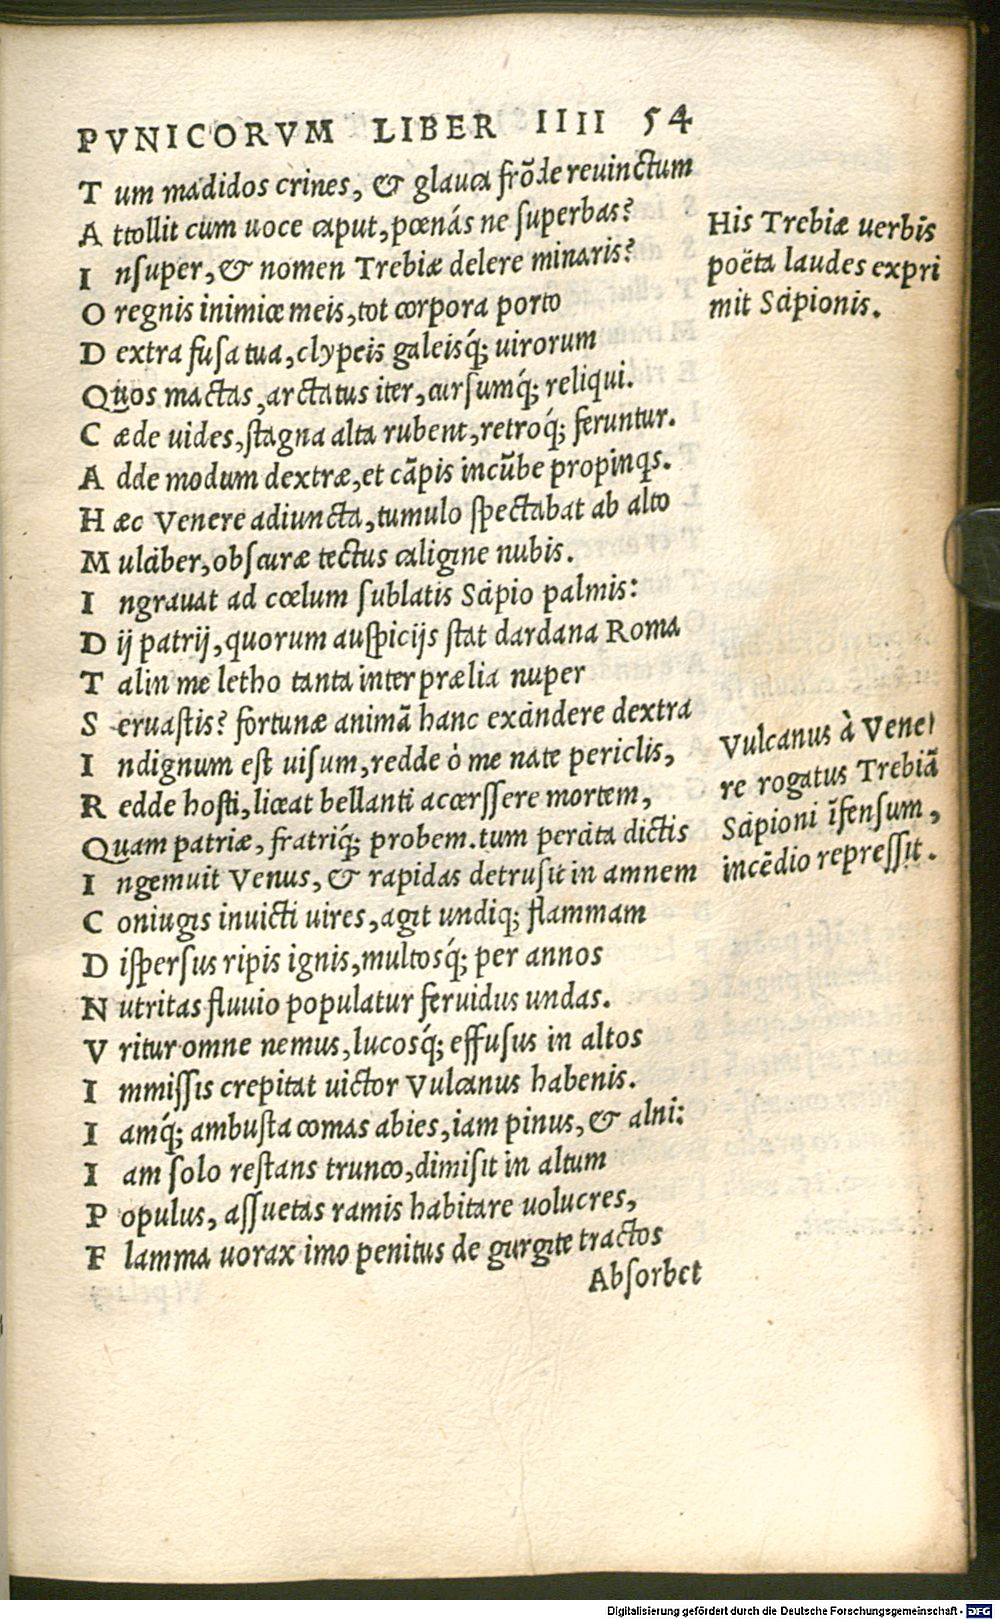 PVNICORVM LIBER IIII 54
T um madidos crines, & glauca frōde reuinctum
A ttollit cum uoce caput, pœnás ne superbas?
I nsuper, & nomen Trebiæ delere minaris?
O regnis inimice meis, tot corpora porto
D extra fusa tua, clypeis galeisq́; uirorum
Q uos mactas, arctatus iter, cursumq́; reliqui.
C æde uides, stagna alta rubent, retroq́; feruntur.
A dde modum dextræ, et cāpis incūbe propinqs.
H æc Venere adiuncta, tumulo spectabat ab alto
M ulciber, obscuræ tectus caligine nubis.
I ngrauat ad cœlum sublatis Scipio palmis:
D ij patrij, quorum auspicijs stat dardana Roma
T alin me letho tanta inter prælia nuper
S eruastis? fortunæ animā hanc excindere dextra
I ndignum est uisum, redde ò me nate periclis,
R edde hosti, liceat bellanti accerssere mortem,
Q uam patriæ, fratriq́; probem. tum percita dictis
I ngemuit Venus, & rapidas detrusit in amnem
C oniugis inuicti uires, agit undiq; flammam
D ispersus ripis ignis, multosq́; per annos
N utritas fluuio populatur feruidus undas.
V ritur omne nemus, lucosq́; effusus in altos
I mmissis crepitat uictor Vulcanus habenis.
I amq́; ambusta comas abies, iam pinus, & alni:
I am solo restans trunco, dimisit in altum
P opulus, assuetas ramis habitare uolucres,
F lamma uorax imo penitus de gurgite tractos
Absorbet
His Trebiæ uerbis
poëta laudes expri
mit Scipionis.
Vulcanus à Vene
re rogatus Trebiā
Scipioni īfensum,
incēdio repressit.
Digitalisierung gefördert durch die Deutsche Forschungsgemeinschaft - DFG